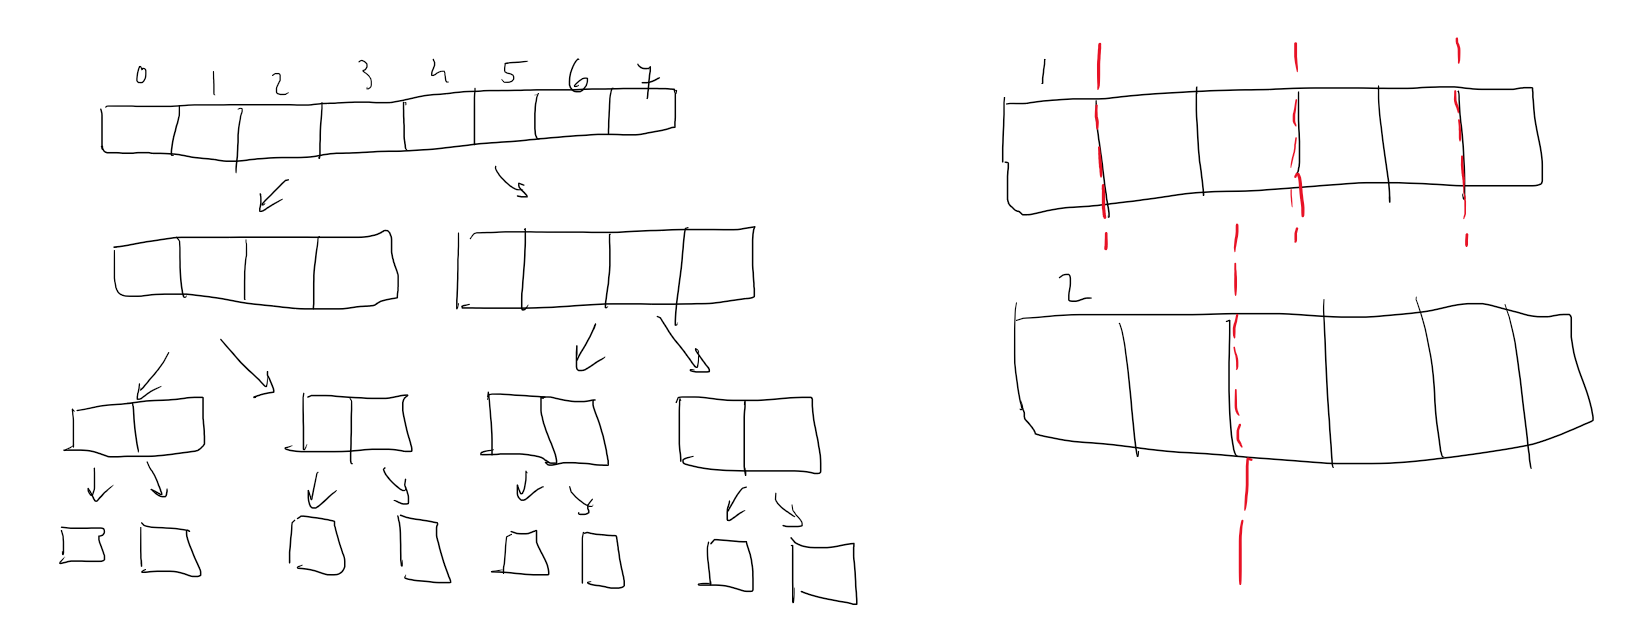 0 1 2 3 4 5 6 7
1
2